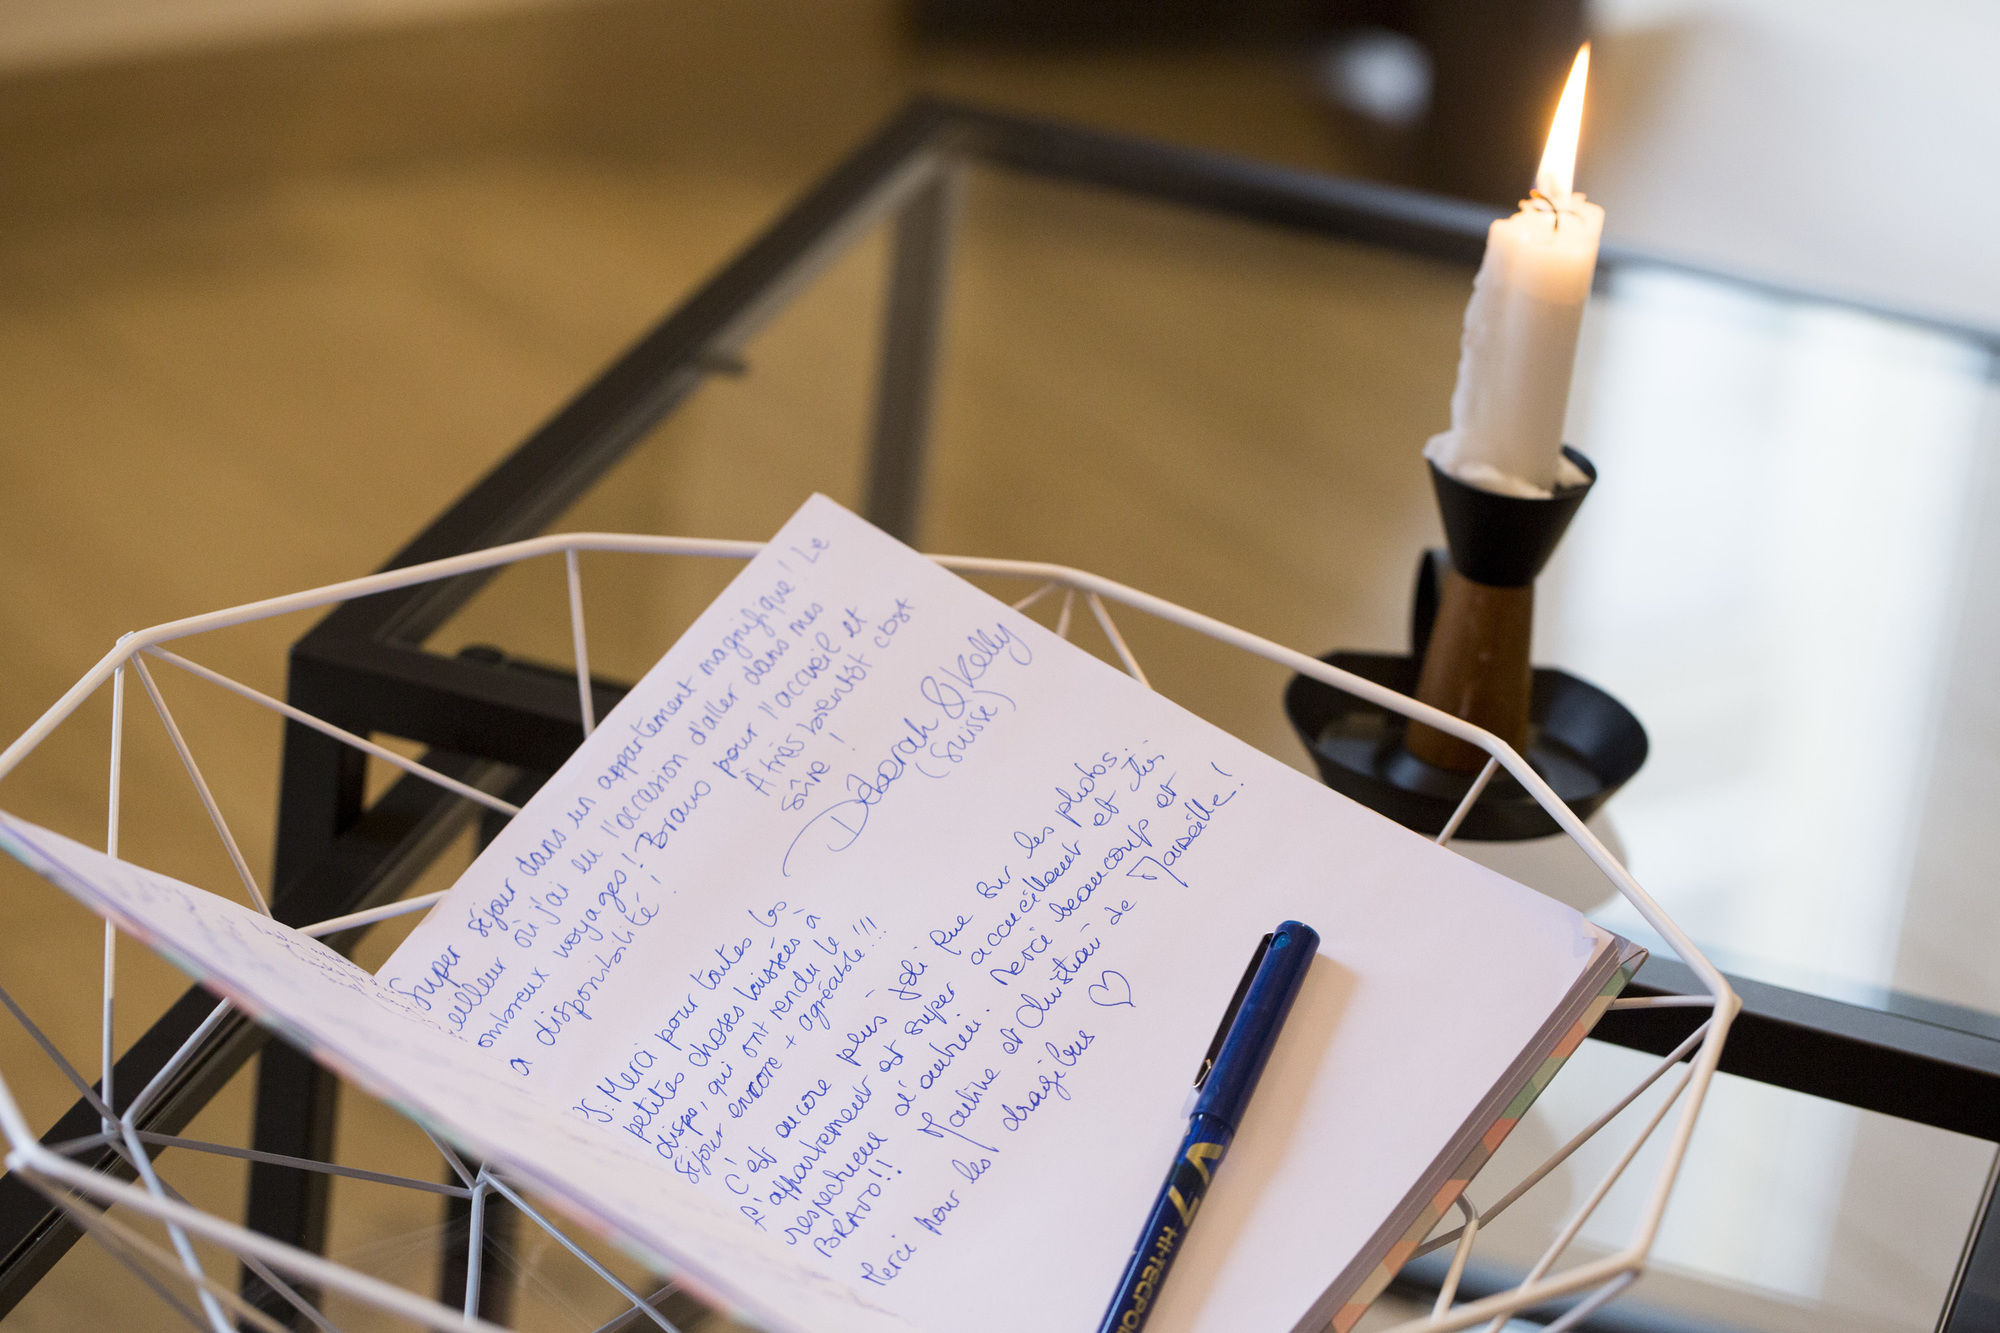 Super séjour dans un appartement magnifique ! Le
meilleur où j'ai eu l'occasion d'aller dans mes
nombreux voyages ! Bravo pour l'accueil et
la disponibilité ! À très bientôt c'est
sûre !
Déborah & Kelly
(Suisse)
PS: Merci pour toutes les
petites choses laissées à
dispo, qui ont rendu le
séjour encore + agréable !!!
C'est encore plus joli que sur les photos.
L'appartement est super accueillant et très
respectueux d'autrui. Merci beaucoup et
BRAVO !! Maëline et Christian de Marseille !
Merci pour les dragibus ♡
V7 HI-TECPOI